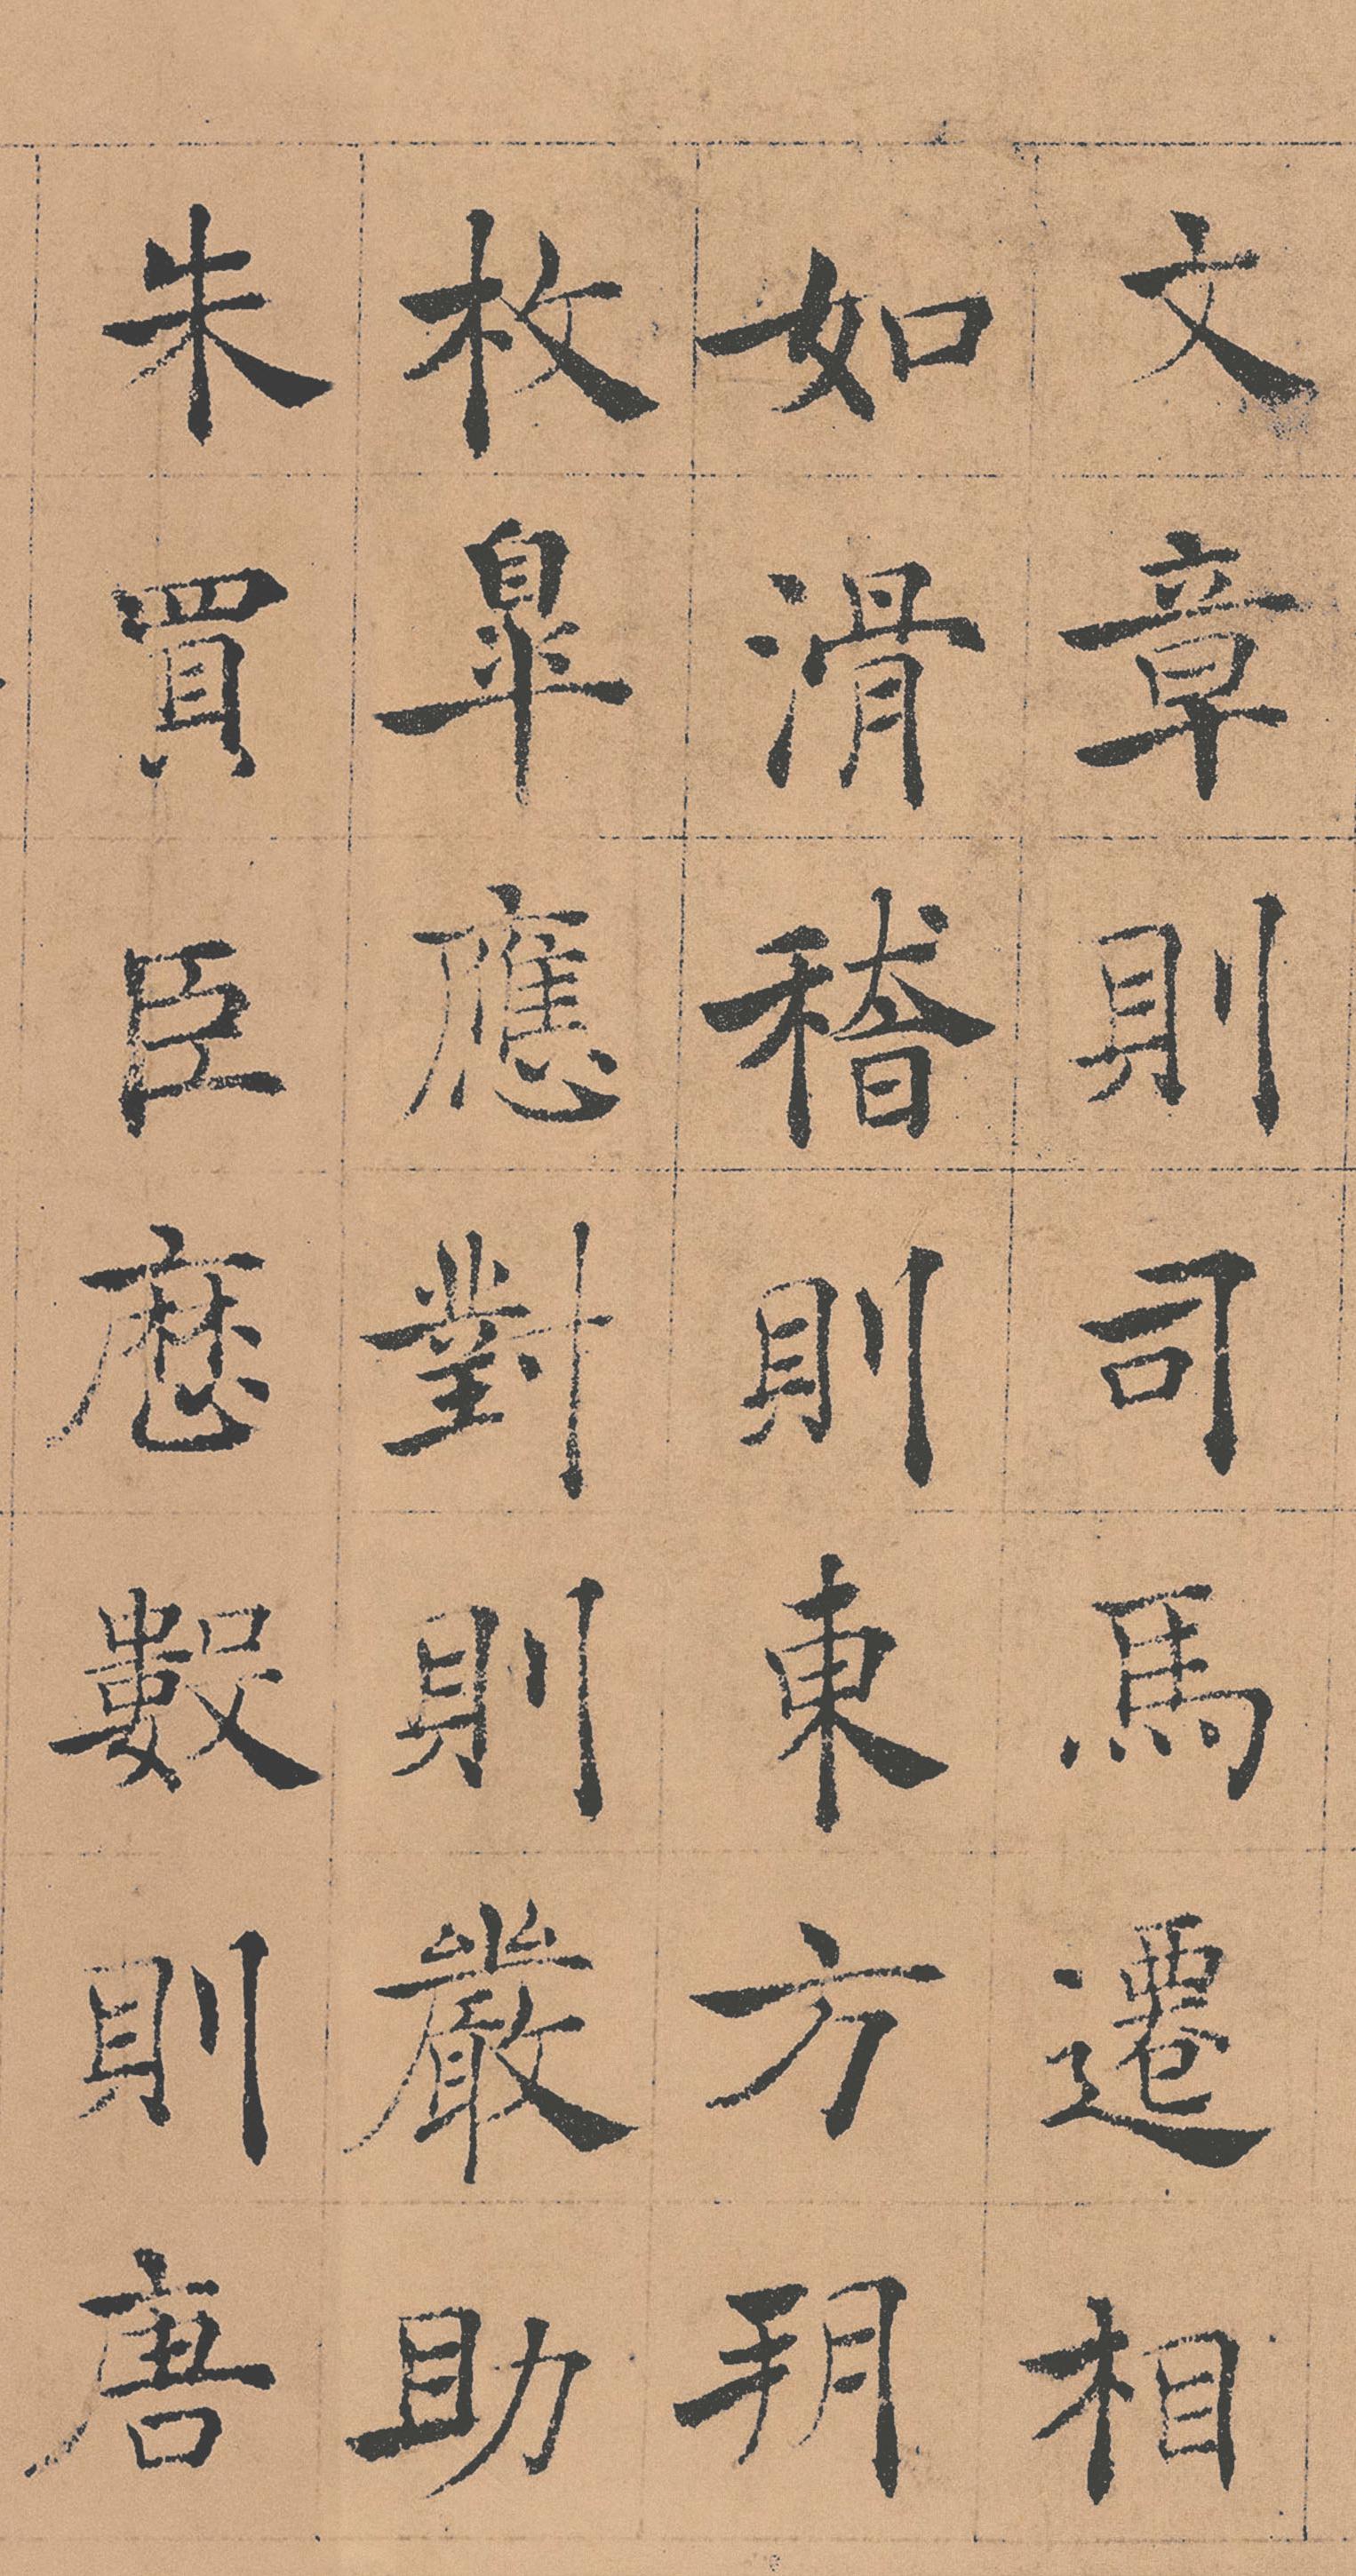 文章則司馬遷相
如滑稽則東方朔
枚皐應對則嚴助
朱買臣應數則唐